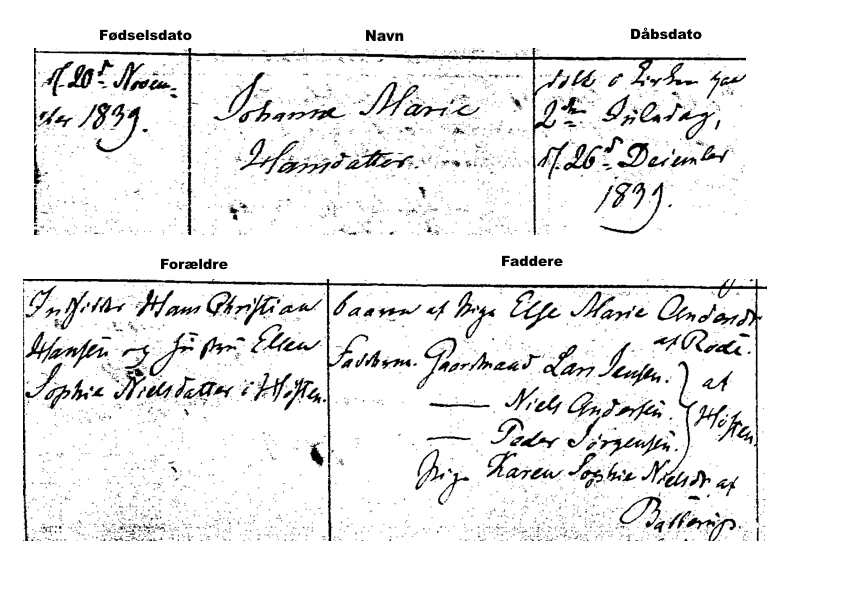 Fødselsdato
Navn
Dåbsdato
d. 20de Novem-
ber 1839.
Johanne Marie
Hansdatter.
døbt i Kirken paa
2den Juledag,
d. 26de December
1839.
Forældre
Faddere
Indsidder Hans Christian
Hansen og Hustru Ellen
Sophie Nielsdatter i Høsten.
baaren af Pige Else Marie Andersdr
af Rode.
Fadderne. Gaardmand Lars Jensen.
— Niels Andersen.
— Peder Jørgensen.
af
Høsten.
Pige Karen Sophie Nielsdr. af
Ballerup.